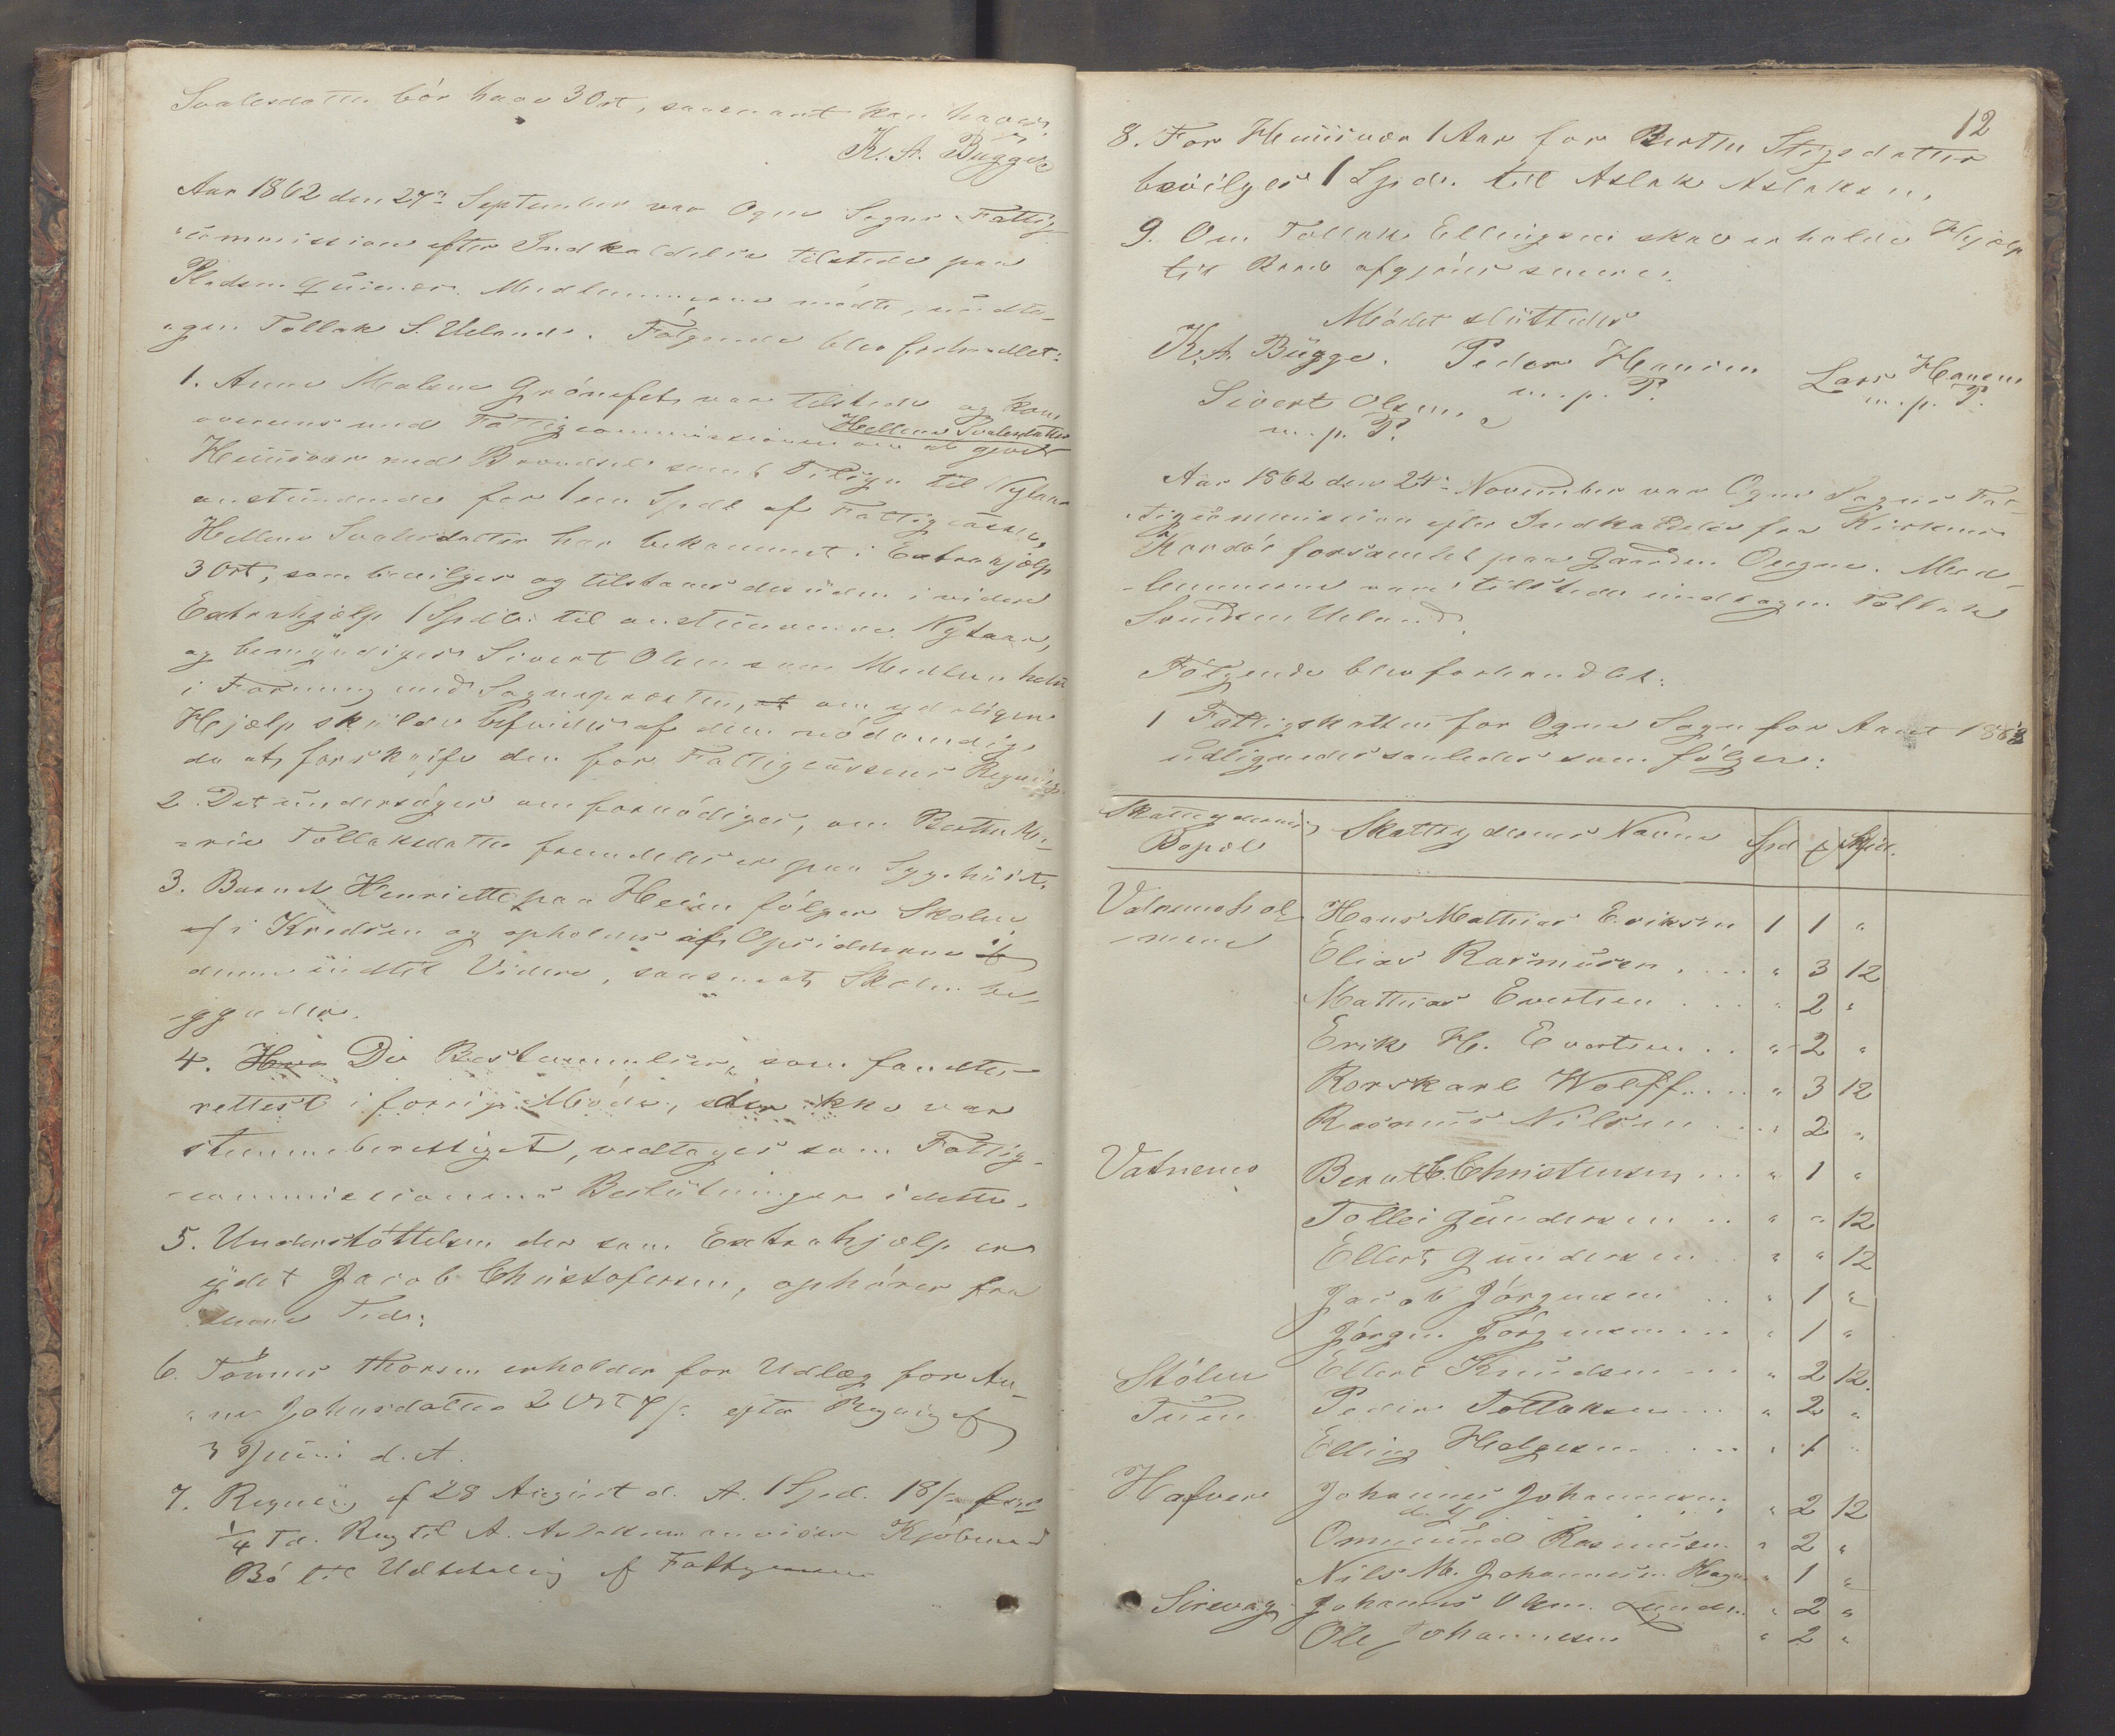 Svalesdatter bör have 3 Ort, saasnart kan haves.
K. A. Bugge
Aar 1862 den 27de September var Ogne Sogns Fattig-
commission efter Indkaldelse tilstede paa
Pladsen Medlemmerne mödte, undta-
gen Tollak S. Ueland. Fölgende blev forhandlet:
1. Anne Malene Grönefet var tilstede og kom
overens med Fattigcommissionen om at give Hellene Svalesdatter
Huusvær med Brændsel samt til Nytaar
anstundende for 1 en Spdl af Fattigcassen,
Hellene Svalesdatter har bekommet i Extrahjælp
3 Ort, som bevilges og tilstaaes desuden i videre
Extrahjælp 1 Spdlr. til anstundende Nytaar,
og bemyndiges Sivert Olsen som Medlem
i Forening med Sognepræsten, om yderligere
Hjælp skulde befindes af den nödvendig,
da at forskaffe den for Fattigcassens Regning.
2. Det undersöges om fornödiges, om Berthe Ma-
rie Tollaksdatter fremdeles er paa Sygehuset.
3. Barnet Henriette paa Heim fölger Skolen
i Kredsen og opholdes af Opsidderne
denne indtil Videre, saasnart Skolen be-
gynder.
4. Hva De Bestemmelser, som fandtes
rettest i forrige Möde, der ikke var
stemmeberettiget, vedtages som Fattig-
commissionens Beslutninger i dette.
5. Understöttelsen der som Extrahjælp er
ydet Jacob Christofersen, ophörer fra
denne Tid.
6. Tönnes Thorsen erholder for Udlæg for An-
ne Johnsdatter 2 Ort 7 s. efter Regning af
3 Juni d. A.
7. Regning af 28 August d. A. 1 Spd. 18 s. for
1/4 Td. Rug til A. Aslaksen anvises Kjöbmand
Bö til Udbetaling af Fattigcassen
12
8. For Huusvær 1 Aar for Berthe Stigsdatter
bevilges 1 Spdr. til Aslak Aslaksen.
9. Om Tollak Ellingsen skal erholde Hjelp
til Baad afgjöres senere.
Mödet sluttedes
K. A. Bugge. Peder Hansen Lars Hansen
m. p. P. m. p. P.
Sivert Olsen.
m. p. P.
Aar 1862 den 24de November var Ogne Sogns Fat-
tigcommission efter Indkaldelse fra Kirkens
Kordör forsamlet paa Gaarden Ougne. Med-
lemmerne vare tilstede undtagen Tollak
Svendsen Ueland.
Fölgende blev forhandlet:
1 Fattigskatten for Ogne Sogn for Aaret 1863
udlignedes saaledes som fölger:
Skatteydernes Bopæl Skatteydernes Navne Spd Skil.
Vatnemohol-
mene
Hans Mathias Eriksen 1 1 "
Elias Rasmusen . . . " 3 12
Mathias Evertsen . . . " 2 "
Erik H. Evertsen . . " 2 "
Rorskarl Wolff . . . " 3 12
Rasmus Nilsen . . . " 2 "
Vatnemo Bernt C. Christensen . . . " 1 "
Tollei Gundersen . . " " 12
Ellert Gundersen . . " " 12
Jacob Jörgensen . . " 1 "
Jörgen Jörgensen . . . " 1 "
Stölen Ellert Knudsen . . . " 2 12.
Tuen Peder Tollaksen . . . " 2 "
Elling Helgesen . . . . " 1 "
Hafver Johannes Johannesen " 2 12
d. y.
Ommund Rasmusen " 2 "
Nils M. Johannesen " 1 "
Sirevaag Johannes Olsen " 2 "
Ole Johannesen " 2 "